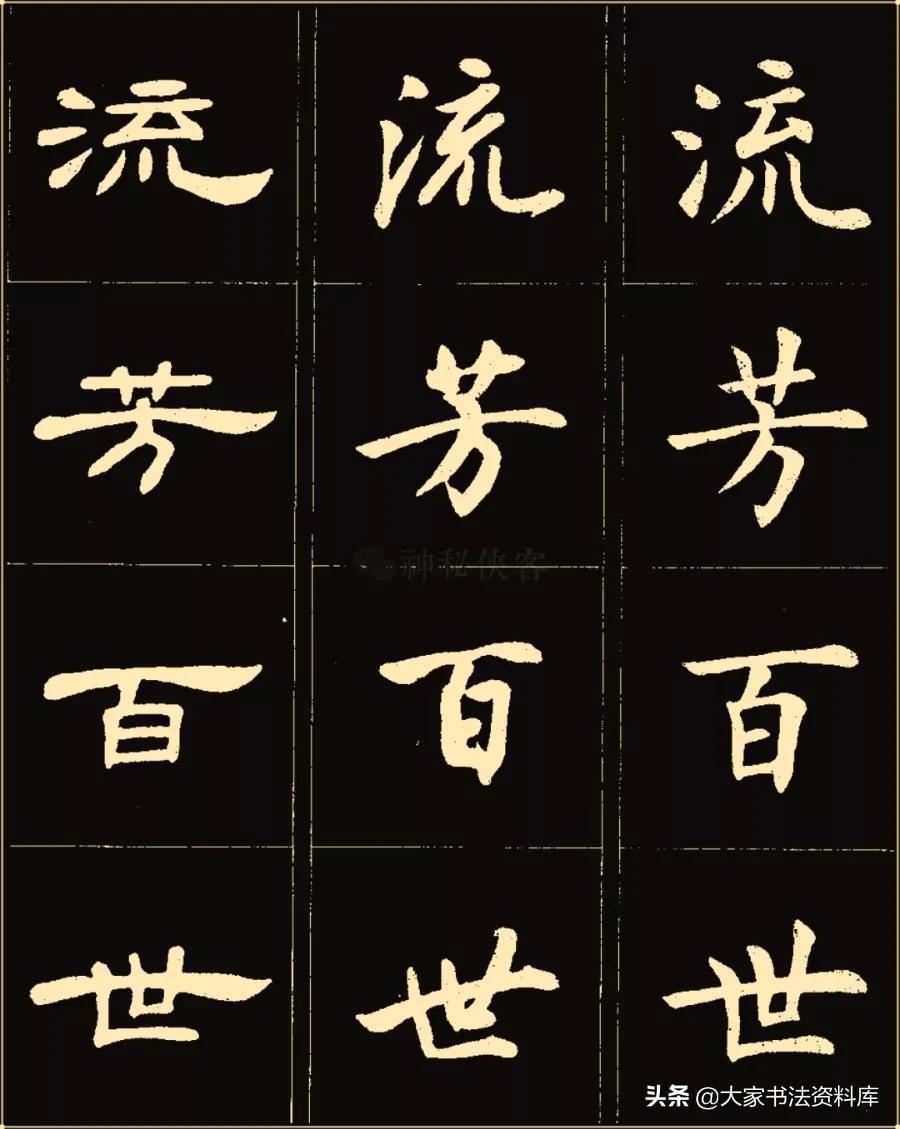 流 流 流
芳 芳 芳
百 百 百
世 世 世
神秘侠客
头条 @大家书法资料库